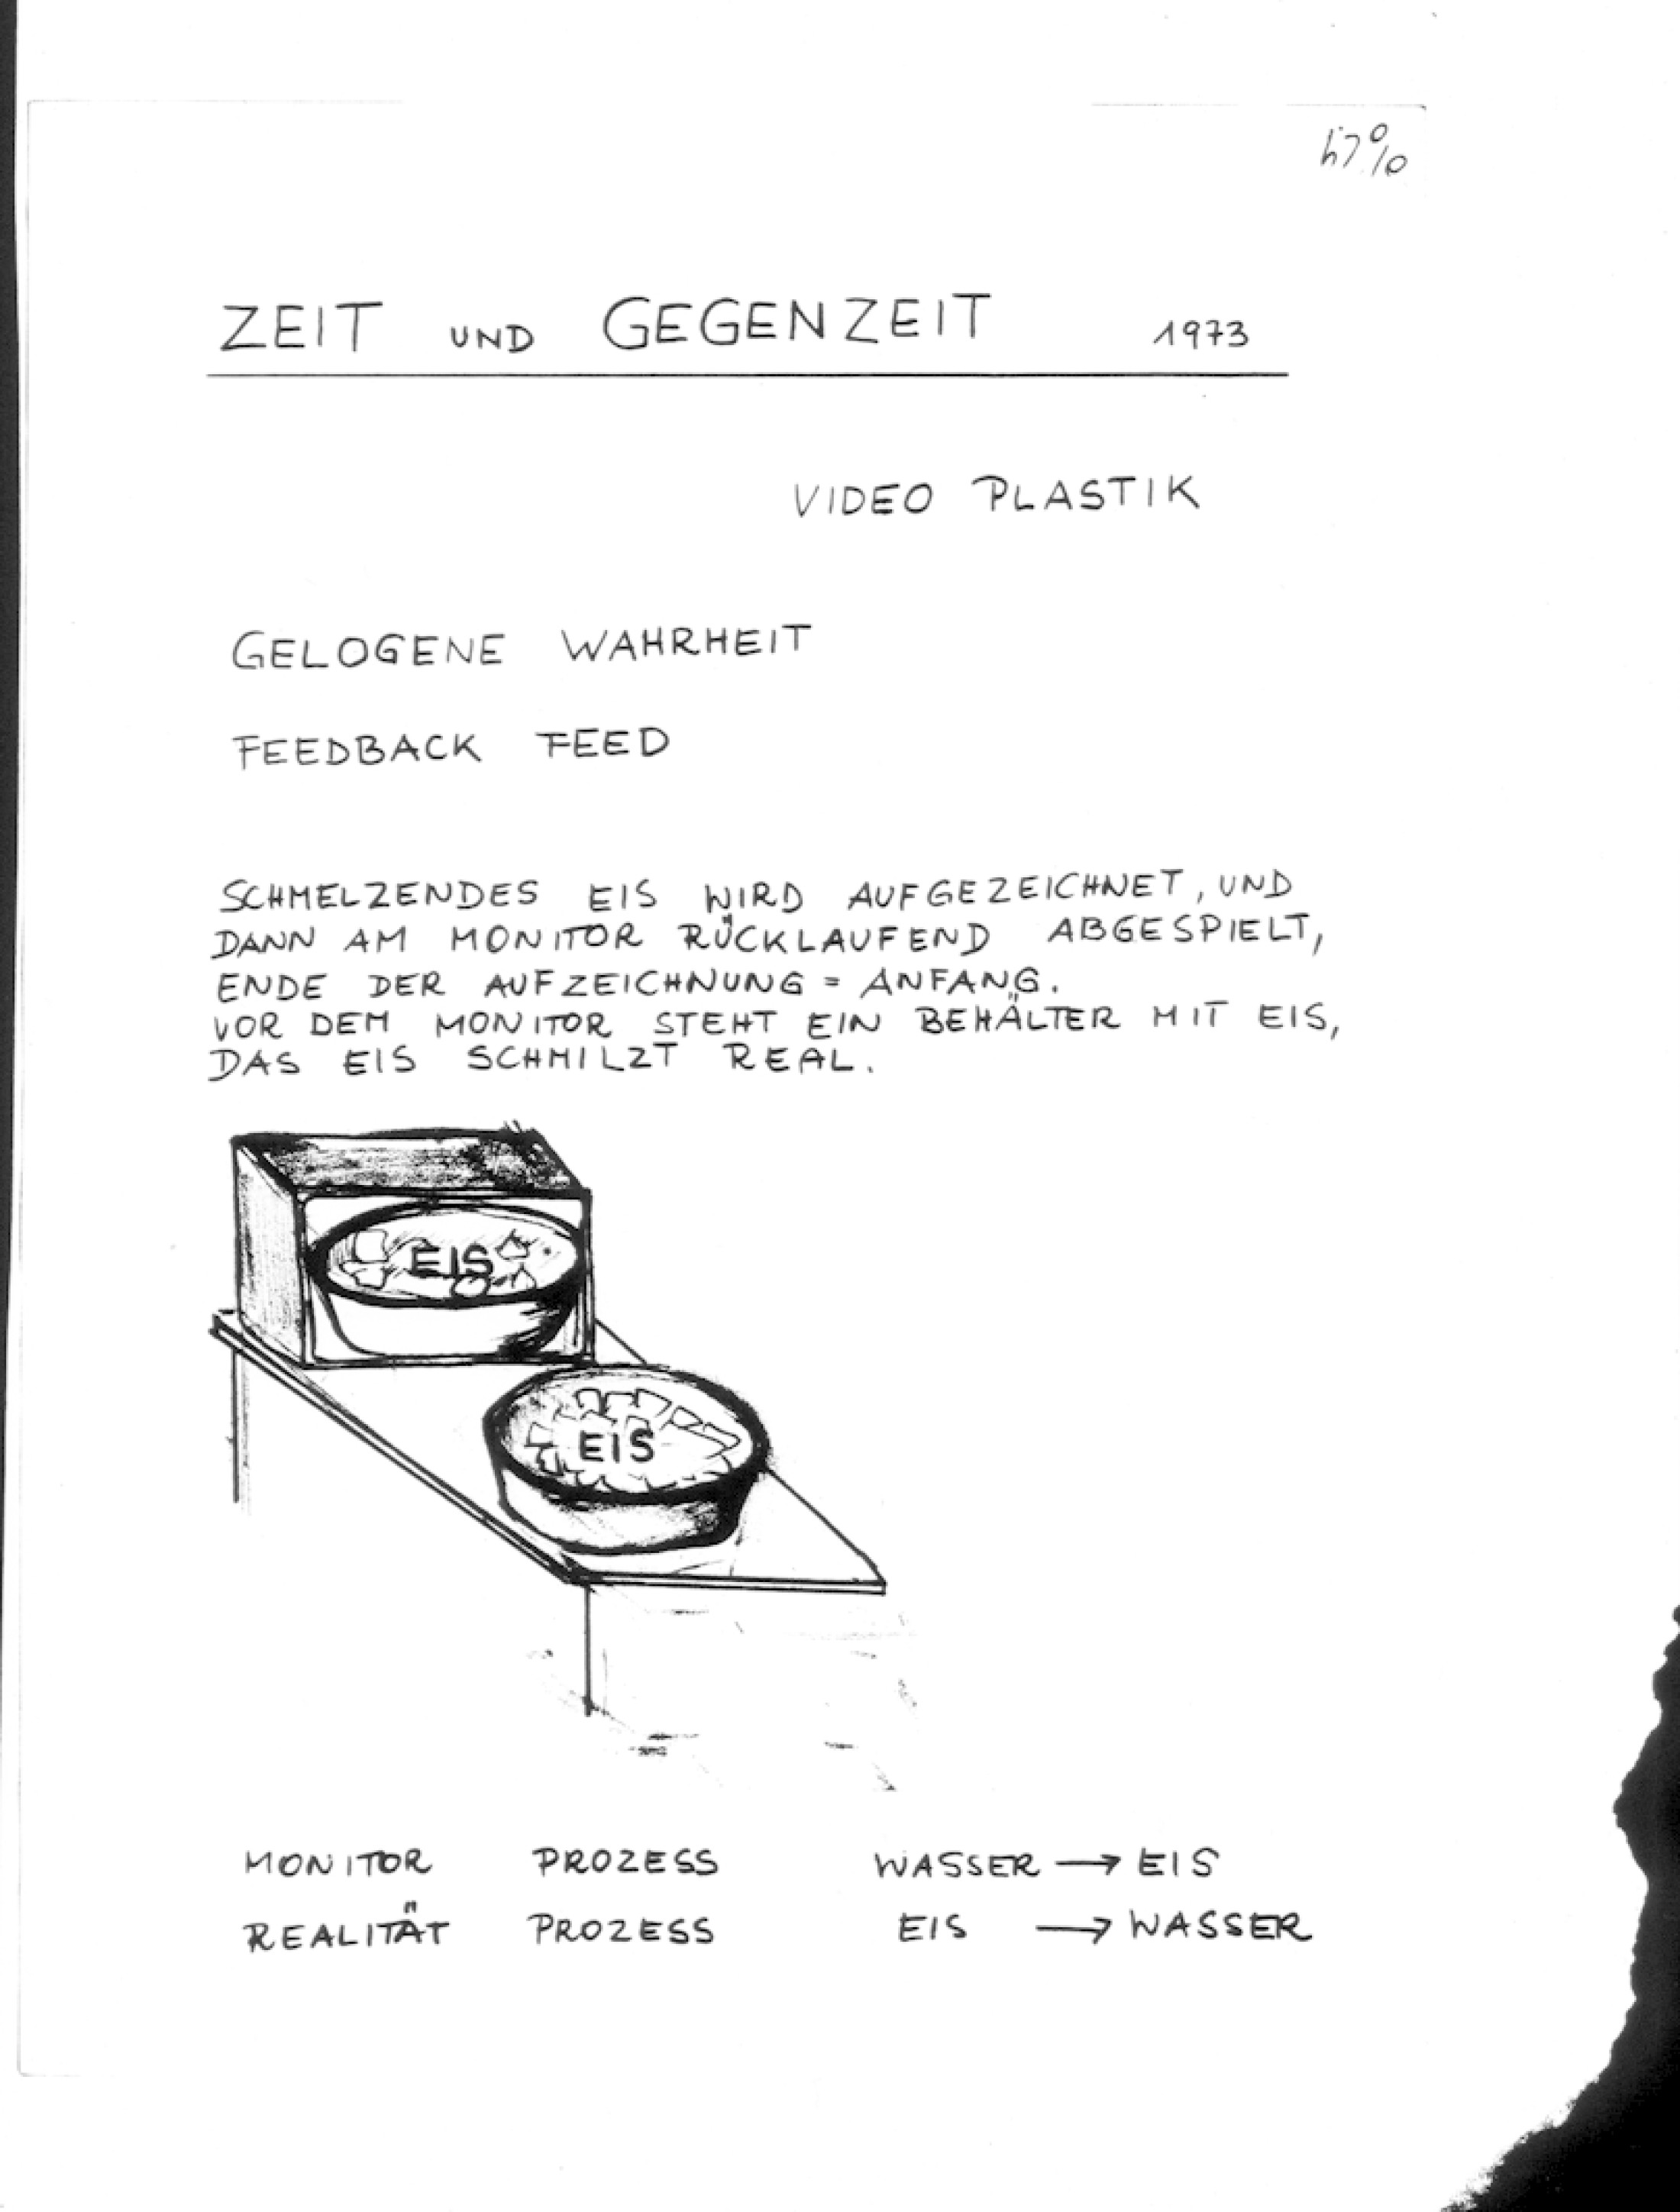 ZEIT UND GEGENZEIT 1973
VIDEO PLASTIK
GELOGENE WAHRHEIT
FEEDBACK FEED
SCHMELZENDES EIS WIRD AUFGEZEICHNET, UND
DANN AM MONITOR RÜCKLAUFEND ABGESPIELT,
ENDE DER AUFZEICHNUNG = ANFANG.
VOR DEM MONITOR STEHT EIN BEHÄLTER MIT EIS,
DAS EIS SCHMILZT REAL.
EIS
EIS
MONITOR PROZESS WASSER → EIS
REALITÄT PROZESS EIS → WASSER